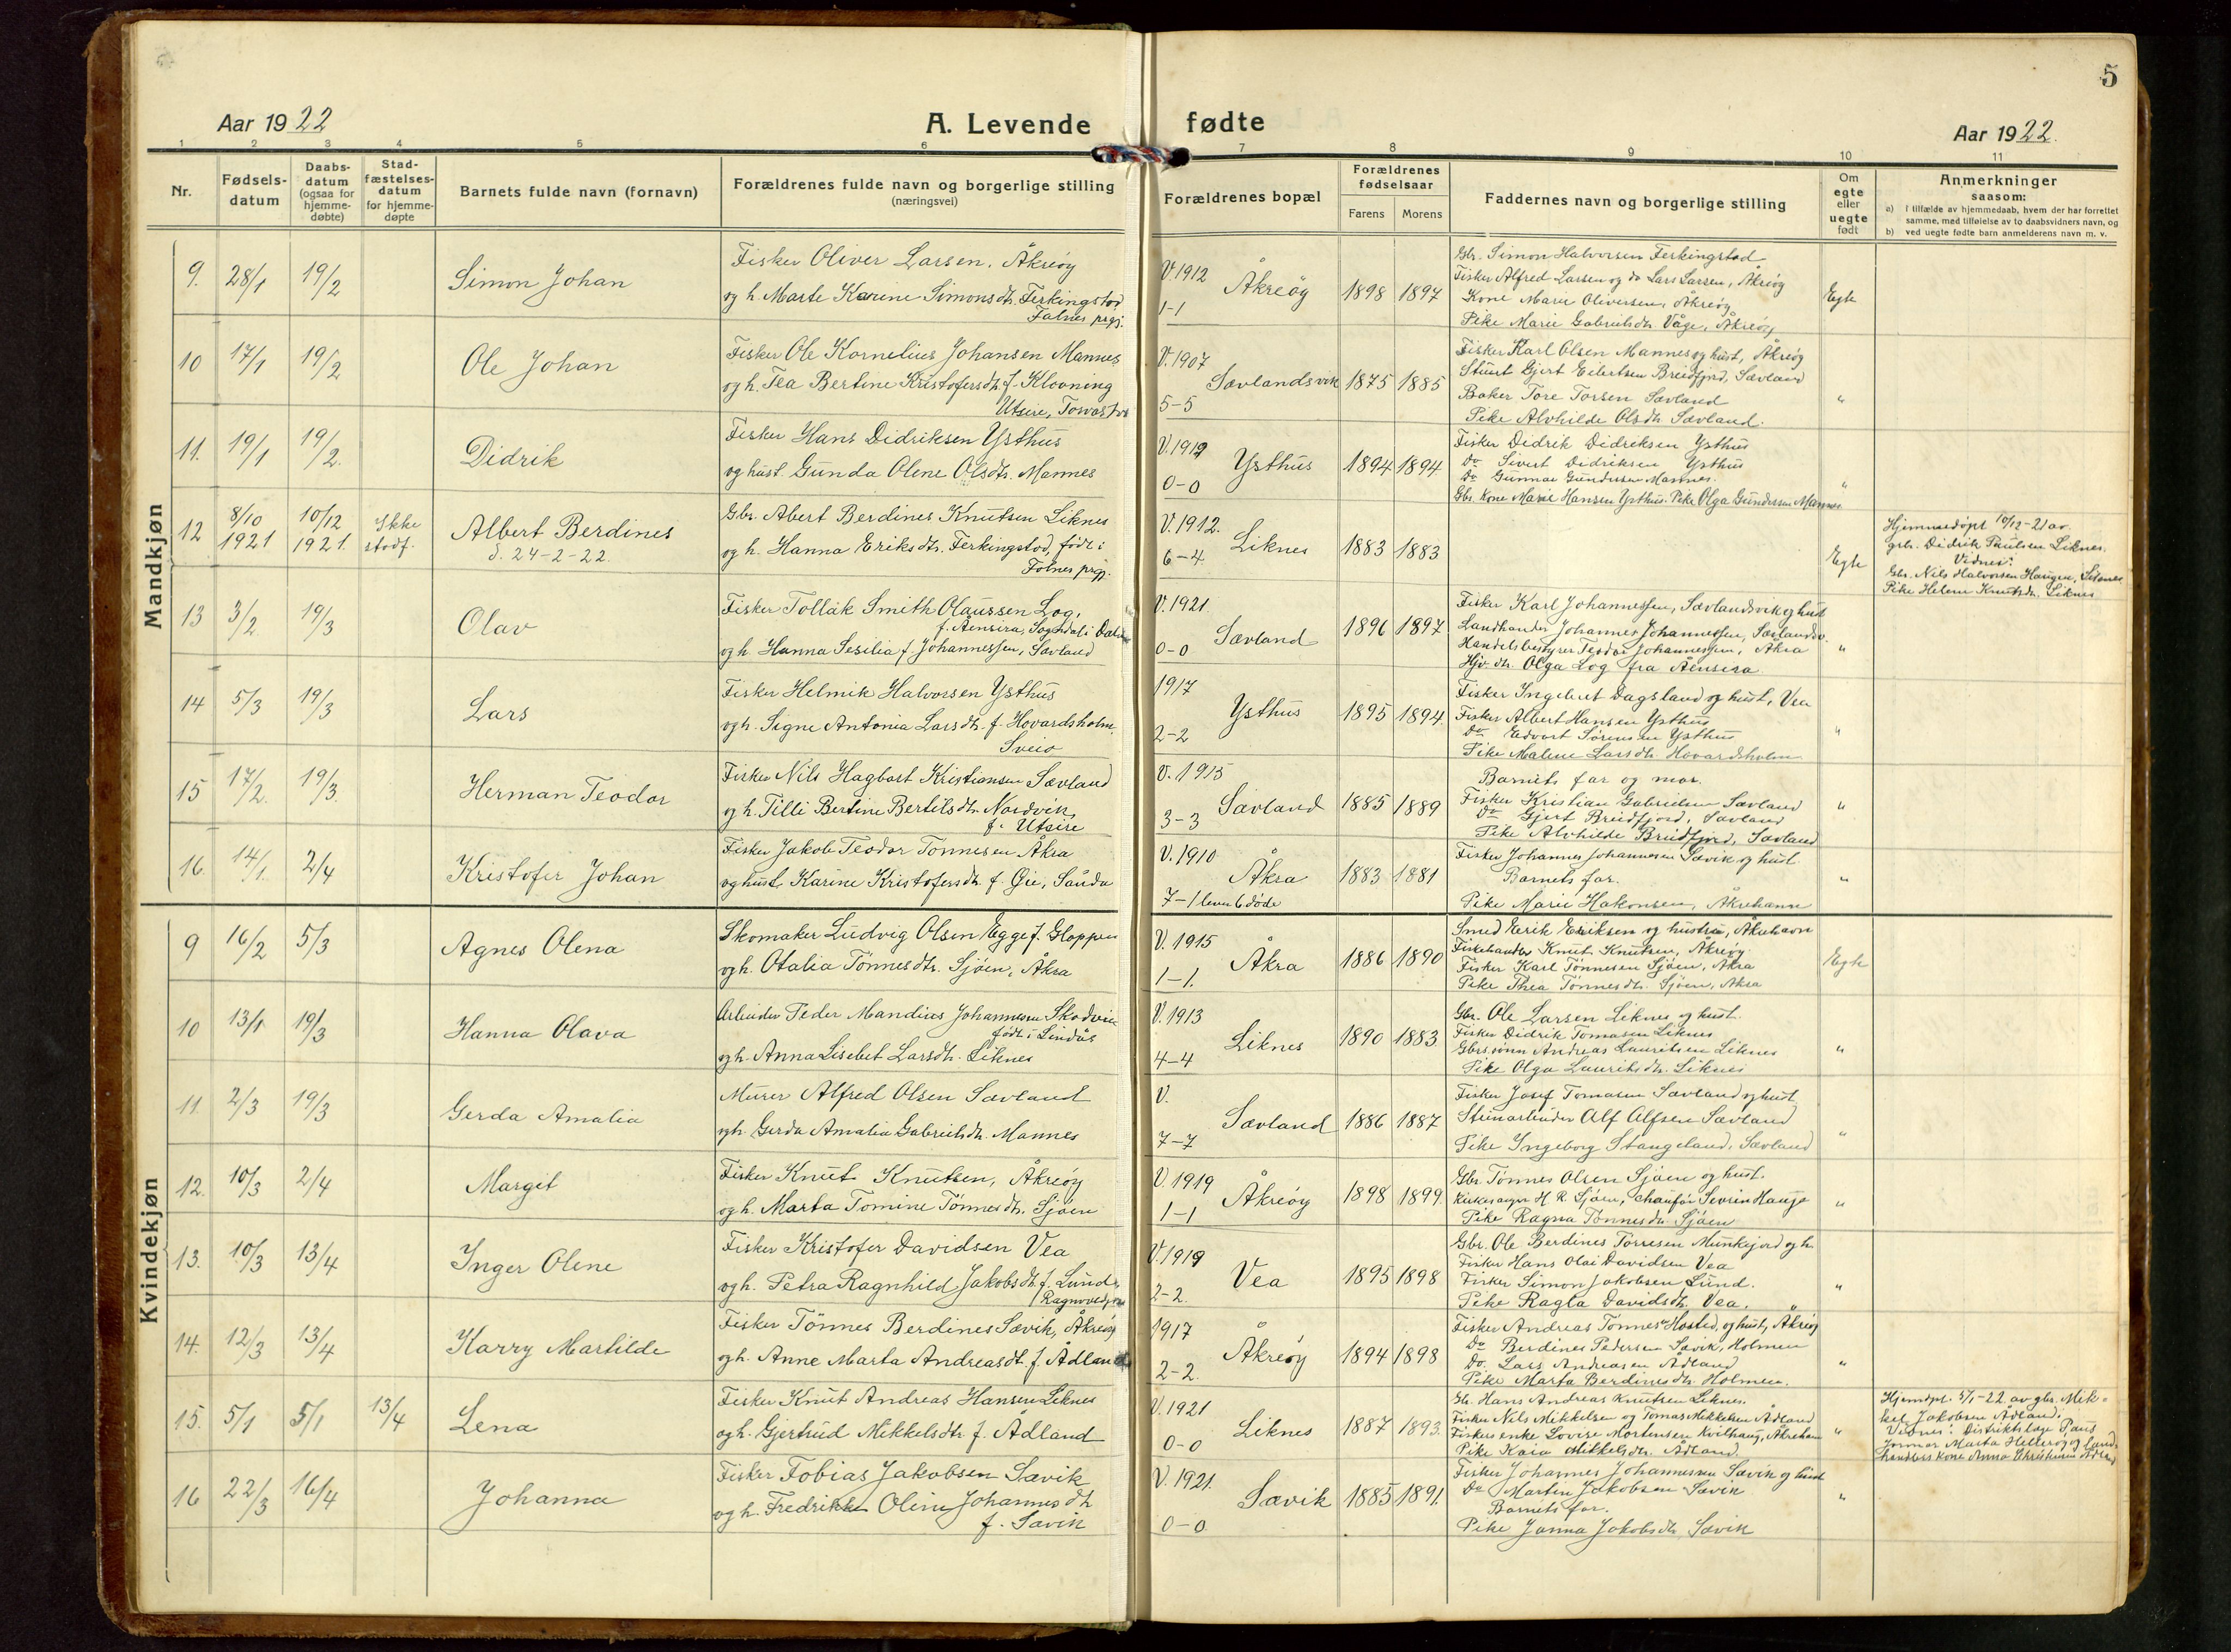 5
Aar 1922
A. Levende fødte
Aar 1922.
1 2 3 4 5 6 7 8 9 10 11
Nr.
Fødsels-
datum
Daabs-
datum
(ogsaa for
hjemme-
døbte)
Stad-
fæstelses-
datum
for hjemme-
døpte
Barnets fulde navn (fornavn)
Forældrenes fulde navn og borgerlige stilling
(næringsvei)
Forældrenes bopæl
Forældrenes
fødselsaar
Farens Morens
Faddernes navn og borgerlige stilling
Om
egte
eller
uegte
født
Anmerkninger
saasom:
a) I tilfælde av hjemmedaab, hvem der har forrettet
samme, med tilføielse av to daabsvidners navn, og
b) ved uegte fødte barn anmelderens navn m. v.
Mandkjøn
9. 28/1 19/2 Simon Johan
Fisker Oliver Larsen, Åkreøy
og h. Marte Karine Simonsdtr. Ferkingstad
Falnes prgj.
V. 1912
1-1
Åkreøy 1898 1897
Gbr. Simon Halvorsen Ferkingstad
Fisker Alfred Larsen og do Lars Larsen, Åkreøy
Kone Marie Oliversen, Åkreøy
Pike Marie Gabrielsdtr. Våge, Åkreøy
Egte
10 17/1 19/2 Ole Johan
Fisker Ole Kornelius Johansen Mannes
og h. Tea Bertine Kristofersdtr. f. Klovning
Utsire, Torvastad
V. 1907
5-5
Sævlandsvik 1875 1885
Fisker Karl Olsen Mannes og hust, Åkreøy
Gjert Eilertsen Breidfjord, Sævland
Baker Tore Torsen Sævland
Pike Alvhilde Olsdtr. Sævland.
"
11. 19/1 19/2. Didrik
Fisker Hans Didriksen Ysthus
og hust. Gunda Olene Olsdtr. Mannes
V. 1919
0-0
Ysthus 1894 1894
Fisker Didrik Didriksen Ysthus
do Sivert Didriksen Ysthus
do Gunnar Gundersen Mannes.
Gbr. Kone Marie Hansen Ysthus. Pike Olga Gundersen Mannes
"
12 8/10 1921 10/12 1921. Ikke stadf. Albert Berdines
d. 24-2-22.
Gbr. Abert Berdines Knutsen Liknes
og h. Hanna Eriksdtr. Ferkingstad, født i
Falnes prgj.
V. 1912.
6-4
Liknes 1883 1883
Egte
Hjemmedøpt 10/12-21 av
gbr. Didrik Paulsen Liknes.
Vidner:
Gbr. Nils Halvorsen Haugen, Liknes
Pike Helene Knutsdtr. Liknes
13 3/2 19/3 Olav
Fisker Tollak Smith Olaussen Log,
f. Åensira, Sogndal i Dal
og h. Hanna Sesilia f. Johannessen, Sævland
V. 1921.
0-0
Sævland 1896 1897
Fisker Karl Johannessen, Sævlandsvik og hust
Landhandler Johannes Johannessen, Sævlandsv.
Handelsbestyrer Teodor Johannessen, Åkra
Hjv. dtr. Olga Log fra Åensira
"
14 5/3 19/3 Lars
Fisker Helmik Halvorsen Ysthus
og h. Signe Antonia Larsdtr. f. Hovardsholm
Sveio
1917
2-2
Ysthus 1895 1894.
Fisker Ingebret Dagsland og hust, Vea
Fisker Albert Hansen Ysthus
do Edvart Sørensen Ysthus
Pike Malene Larsdtr. Hovardsholm
"
15 17/2. 19/3. Herman Teodor
Fisker Nils Hagbart Kristiansen Sævland
og h. Tilli Bertine Bertelsdtr. Nordvik,
f. Utsire
V. 1915
3-3
Sævland 1885 1889
Barnets far og mor.
Fisker Kristian Gabrielsen Sævland
do Gjert Breidfjord, Sævland
Pike Alvhilde Breidfjord, Sævland
"
16. 14/1. 2/4 Kristofer Johan
Fisker Jakob Teodor Tønnesen Åkra
og hust. Karine Kristofersdtr. f. Øie, Sauda
V. 1910
7-1 lever 6 døde
Åkra 1883 1881
Fisker Johannes Johannesen Sævik og hust.
Barnets far.
Pike Marie Hakonsen, Åkrehamn
"
Kvindekjøn
9 16/2 5/3 Agnes Olena
Skomaker Ludvig Olsen Egge f. Gloppen
og h. Otalia Tønnesdtr. Sjøen, Åkra
V. 1915
1-1.
Åkra 1886 1890
Smed Erik Eriksen og hustru, Åkrehavn
Fiskehandler Knut Knutsen, Åkreøy
Fisker Karl Tønnesen Sjøen, Åkra
Pike Thea Tønnesdtr. Sjøen, Åkra
Egte
10 13/1 19/3 Hanna Olava
Arbeider Peder Mandius Johannesen Skodvin
født i Lindås
og h. Anna Lisebet Larsdtr. Liknes
V. 1913
4-4
Liknes 1890 1883
Gbr. Ole Larsen Liknes og hust.
Fisker Didrik Tomasen Liknes
Gbrs. sønn Andreas Lauritsen Liknes
Pike Olga Lauritsdtr. Liknes
"
11. 2/3 19/3 Gerda Amalia
Murer Alfred Olsen Sævland
og h. Gerda Amalia Gabrielsdtr. Mannes
V.
7-7
Sævland 1886 1887
Fisker Josef Tomasen Sævland og hust.
Stenarbeider Alf Alfsen Sævland
Pike Ingeborg Stangeland, Sævland
"
12. 10/3 2/4 Margit
Fisker Knut Knutsen, Åkreøy
og h. Marta Tomine Tønnesdtr. Sjøen
V. 1919
1-1
Åkreøy 1898 1899
Gbr. Tønnes Olsen Sjøen og hust.
Kirkesanger H R Sjøen, Chaufør Sevrin Hauge
Pike Ragna Tønnesdtr. Sjøen
"
13. 10/3 13/4 Inger Olene
Fisker Kristofer Davidsen Vea
og h. Petra Ragnhild Jakobsdtr. f. Lund
V. 1919
2-2.
Vea 1895 1898
Gbr. Ole Berdines Torresen Munkejord og h.
Fisker Hans Olai Davidsen Vea
Fisker Simon Jakobsen Lund.
Pike Ragla Davidsdtr. Vea.
"
14. 12/3 13/4 Karry Martilde
Fisker Tønnes Berdines Sævik, Åkreøy
og h. Anne Marta Andreasdt. f. Ådland
1917
2-2.
Åkreøy 1894 1898
Fisker Andreas Tønnes Høsted, og hust, Åkreøy
do Berdines Pedersen Sævik, Holmen
do. Lars Andreasen Ådland
Pike Marta Berdinesdtr. Holmen.
"
15. 5/1 5/1 13/4 Lena
Fisker Knut Andreas Hansen Liknes
og h. Gjertrud Mikkelsdtr f. Ådland
V. 1921
0-0
Liknes 1887 1893.
Gb. Hans Andreas Knutsen Liknes.
Fisker Nils Mikkelsen og Tomas Mikkelsen Ådland
Fiskers enke Lovise Mortensen Kvilhaug, Åkrehamn
Pike Kaia Mikkelsdtr. Ådland
"
Hjemdpt. 5/1-22 av gbr. Mik-
kel Jakobsen Ådland.
Vidner: Distriktslæge Paus
Jormor Marta Hellesøy og land-
handlers kone Anna Ådland
16 22/3 16/4 Johanna
Fisker Tobias Jakobsen Sævik
og h. Fredrikke Oline Johannesdtr
f. Sævik
V. 1921.
0-0.
Sævik 1885 1891.
Fisker Johannes Johannessen Sævik og hust
do Martin Jakobsen Sævik
Barnets far.
Pike Janna Jakobsdtr. Sævik
"